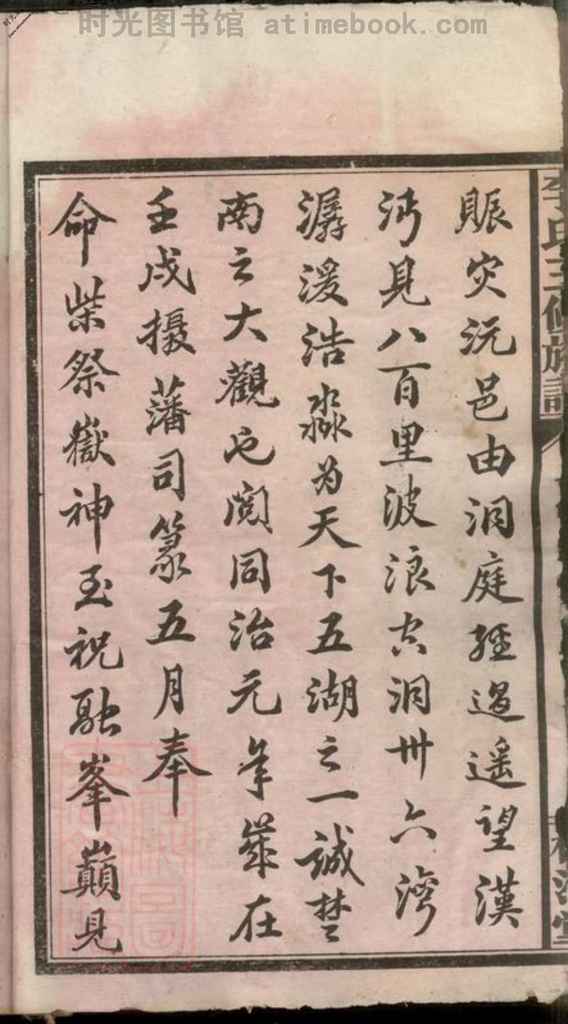 时光图书馆 atimebook.com
李氏三修族譜
賑灾沅邑由洞庭經過遥望漢
沔見八百里波浪空洞卅六灣
潺湲浩淼为天下五湖之一誠楚
南之大觀也閱同治元年歲在
壬戌攝藩司篆五月奉
命柴祭嶽神至祝融峯巔見